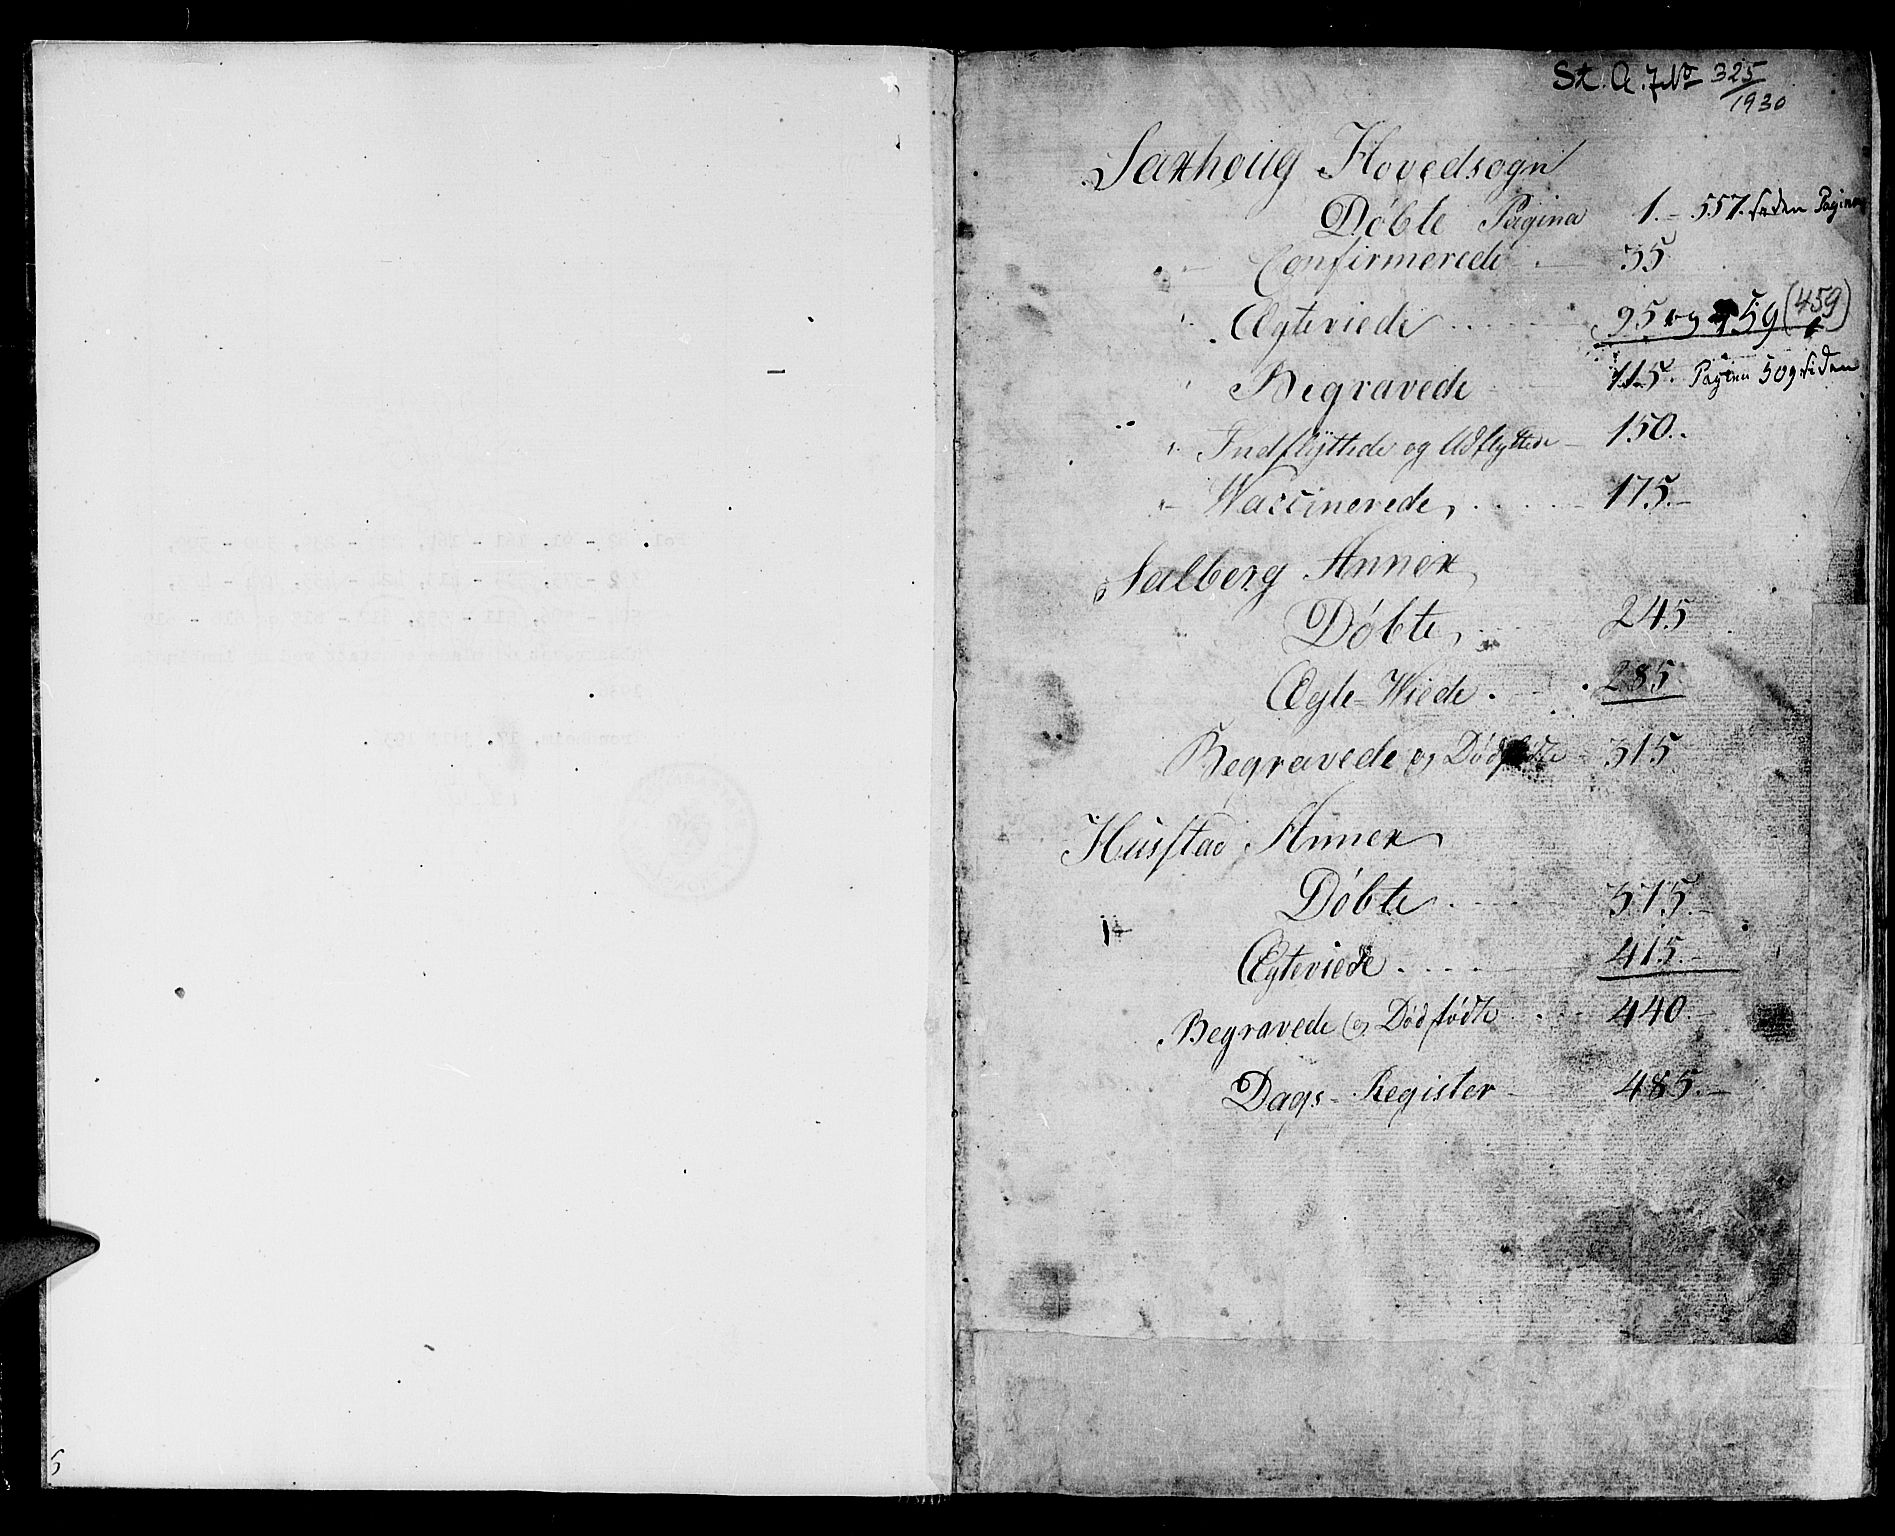 St. A. J.No 325/1930
Saxhoug Hovedsogn
Døbte Pagina 1. - 557. siden Pagina
- Confirmerede - 35
" Ægteviede ..... 95 og 459 (459)
" Begravede 115. Pagina 509 siden
" Indflyttede og Udflyttede - 150.
"- Vaccinerede, ..... 175.-
Salberg Annex,
Døbte, 245
Ægte-Wiede. - . 285
Begravede og Dødfødte - 315
Husstad Annex
Døbte. 375.-
Ægteviede .... 415.-
Begravede og Dødfødte 440
Dags-Register - 485.-
5